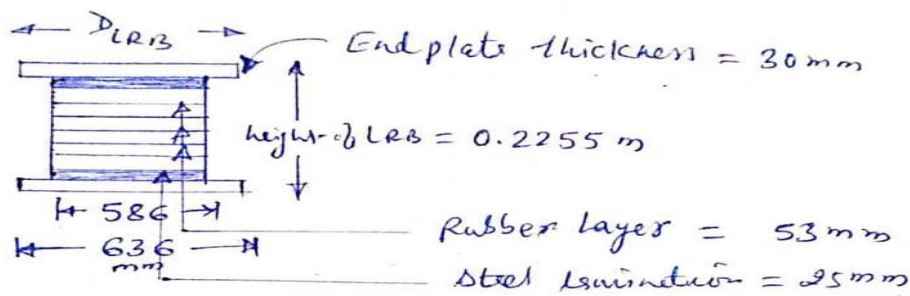 D LRB
End plate thickness = 30 mm
height of LRB = 0.2255 m
586
636
mm
Rubber Layer = 53 mm
Steel lamination = 25 mm